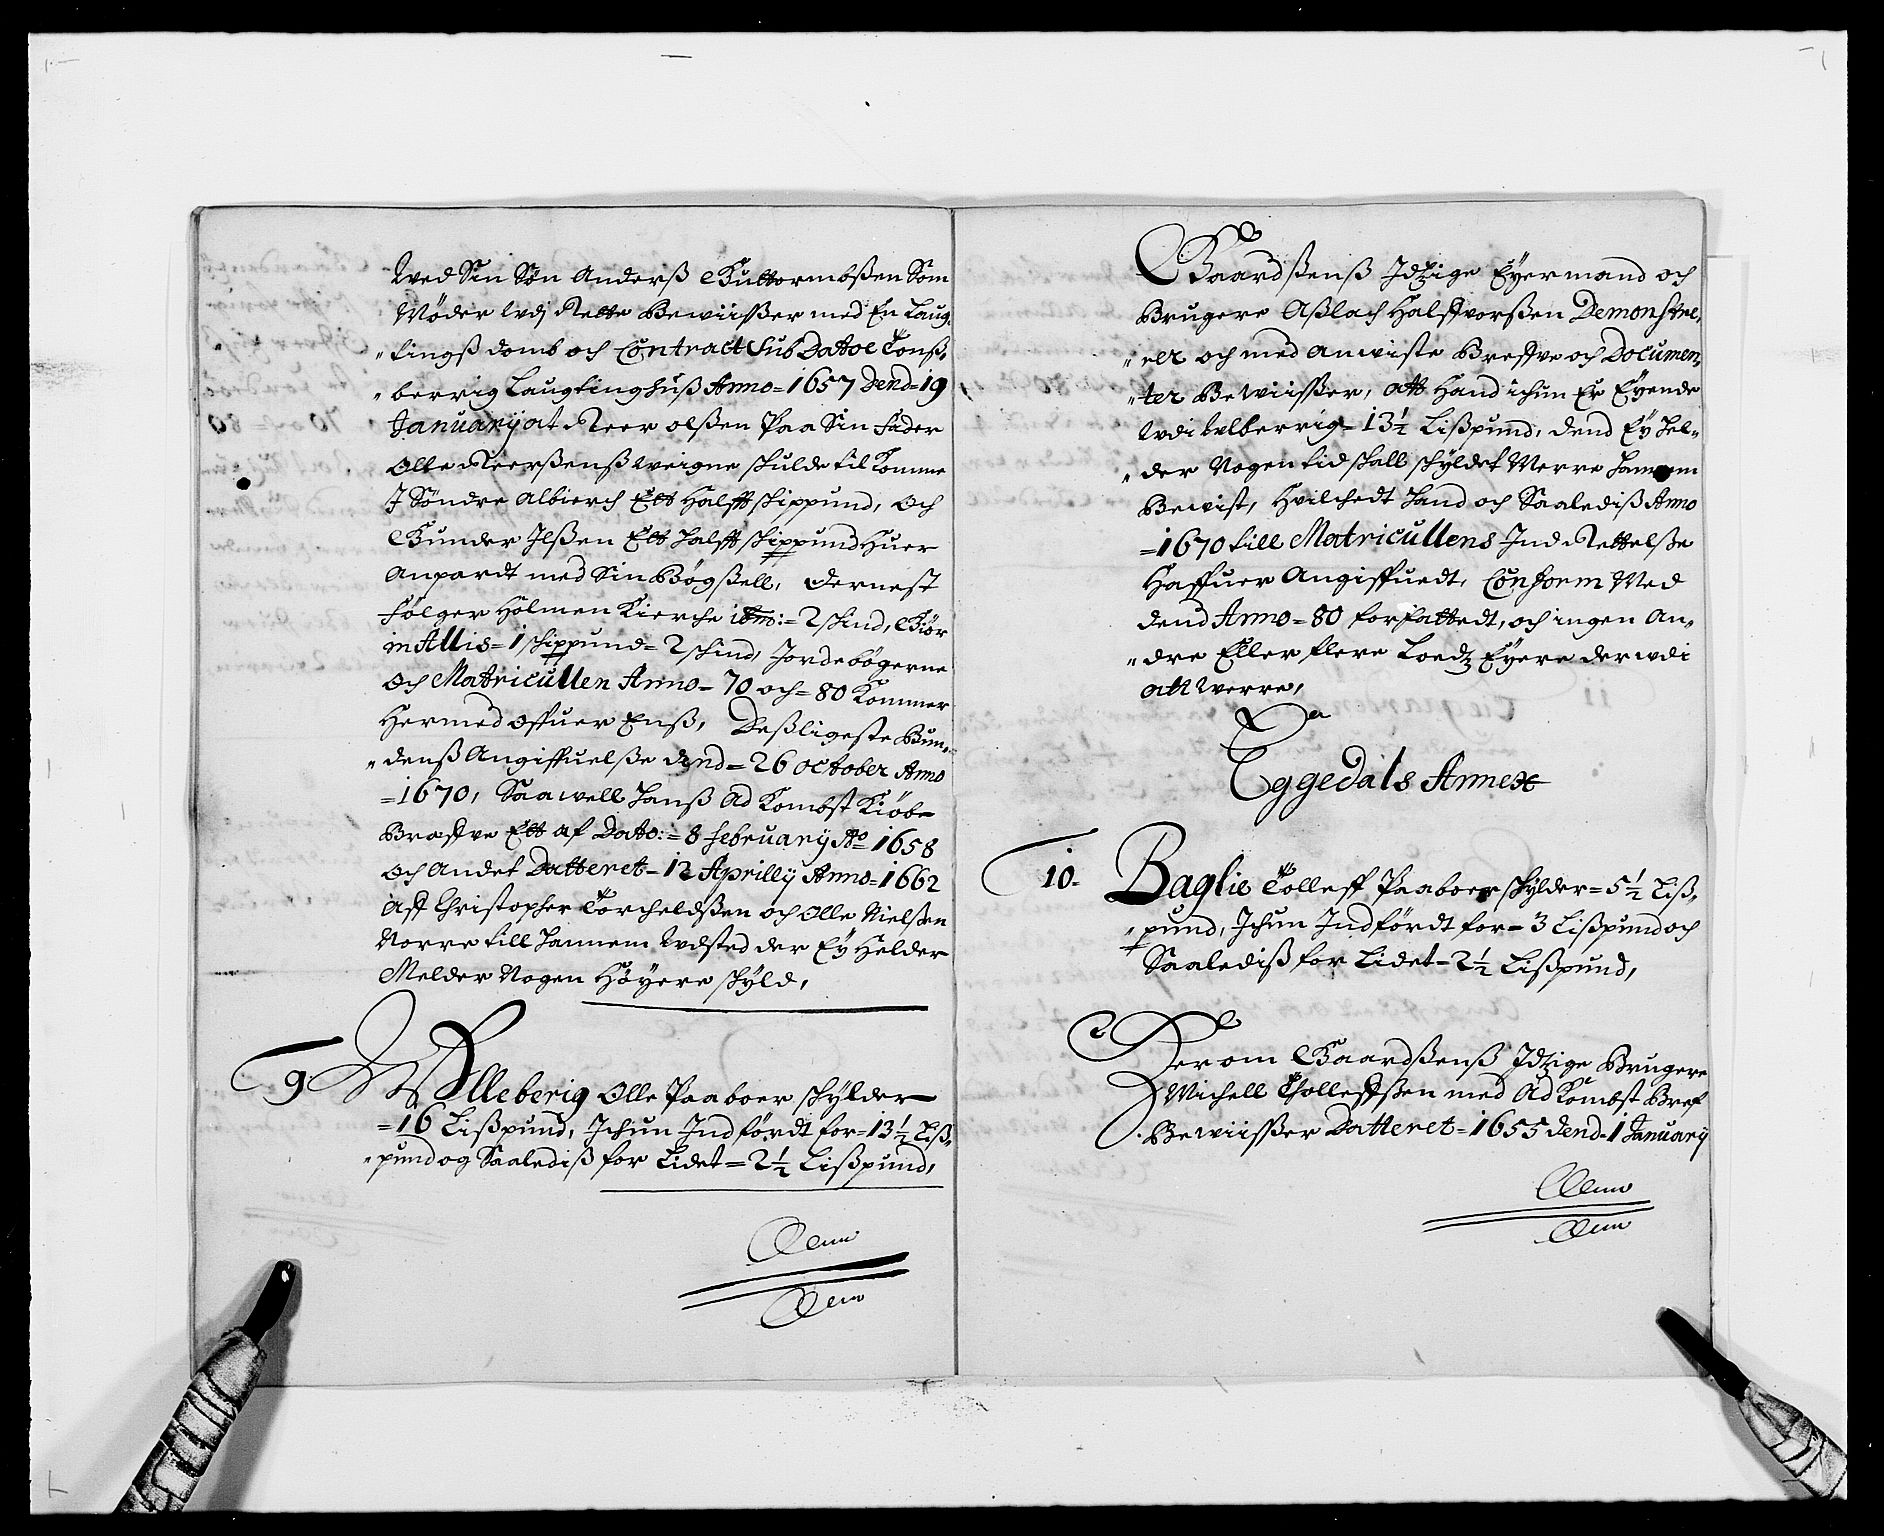 Wed Sin Søn Anderß Guttormbßen Som
Møder Udj Rette Bewiißer med En Laug„
„tingß domb och Contract Sub Datoe Tonß„
„berrig Laugtinghuß Anno = 1657 Dend = 19
Januarij at Reer olßen Paa Sin Fader
Olle Reerßenß Weigne skulde til Komme
J Søndre Albierch Ett Halfft skippund, Och
Gunder Jlßen Ett halfft skippund Huer
Anpardt med Sin Bögßell, dernest
Følger Holmen Kierche item := 2 skind, Giör
in Allis = 1 skippund = 2 skind, Jordebögerne
Och Matricullen Anno = 70 och = 80 Kommer
Hermed offuer Enß, Deßligeste Bun„
„denß Angiffuelße dend = 26 October Anno
= 1670, Saawell hanß Ad Kombst Kiöbe
Breffve Ett af Dato := 8 February Ao = 1658
och Andet Datteret = 12 Aprilly Anno = 1662
Aff Christopher Torcheldßen och Olle Nielßen
Norre till hannem Udsted der Ey Helder
Melder Nogen Höyere skyld,
9. Ulleberig Olle Paaboer skylder
= 16 Lißpund, Ichun Indfördt for = 13½ Liß„
„pund og Saalediß for Lidet = 2½ Lißpund,
Gaardßenß Idtzige Eyermand och
Brugere Aßlach Halffvorßen Demonstre„
„rer och med Anwiste Breffve och Documen„
„ter Bewiißer, Att Hand ichun Er Eyende
Udi Ulberrig = 13½ Lißpund, dend Ey hel„
„der Nogen tid skall skyldet Merre hannem
Bewist, Hvilchedt hand och Saalediß Anno
= 1670 till Matricullens Ind Rettelße
Haffuer Angiffuedt, Conform Med
dend Anno = 80 forfattedt, och ingen An„
„dre Eller flere Loedtz Eyere der udi
att Werre,
Eggedals Annex
10. Baglie Tolleff Paaboer skylder = 5½ Liß„
„pund, Ichun Indfördt for = 3 Lißpund och
Saalediß for Lidet = 2½ Lißpund,
Der om Gaardßenß Idtzige Brugere
Michell Tholleffßen med Ad Kombst Bref
Bewiißer Datteret = 1655 dend = 1 January